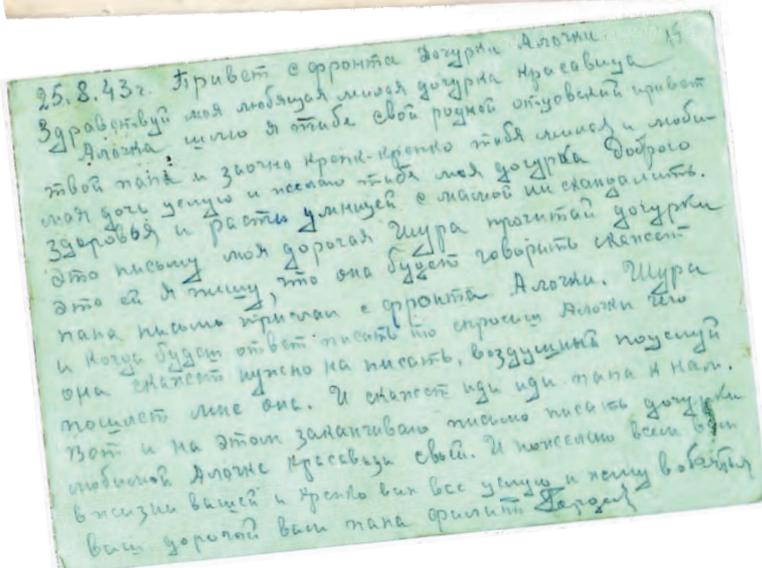 25.8.43г. Привет с фронта дочурки Алочки
Здравствуй моя любящая милая дочурка красавица
Алочка шлю я тибе свой родной отцовский привет
твой папа и заочно крепк-крепко тибя милая и люби-
мая дочь целую и желаю тибе моя дочурка доброго
здоровья и расти умницей с мамой ни скандалить.
Это письмо моя дорогая Шура прочитай дочурки
это ей я пишу, что она будет говорить скажет
папа письмо прислал с фронта Алочки. Шура
и когда будеш ответ писать то спросиш Алочки што
она скажет нужно написать, воздушный поцелуй
пошлет мне она. И скажет иди иди папа к нам.
Вот и на этом заканчиваю письмо писать дочурки
любимой Алочке красавеци своей. И пожелаю всем вам
в жизни вашей и крепко вас всех целую и жму в обятья
ваш дорогой ваш папа Филипп